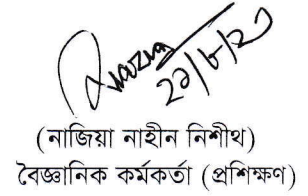 ২১/৮/২৩
(নাজিয়া নাহীন নিশীথ)
বৈজ্ঞানিক কর্মকর্তা (প্রশিক্ষণ)